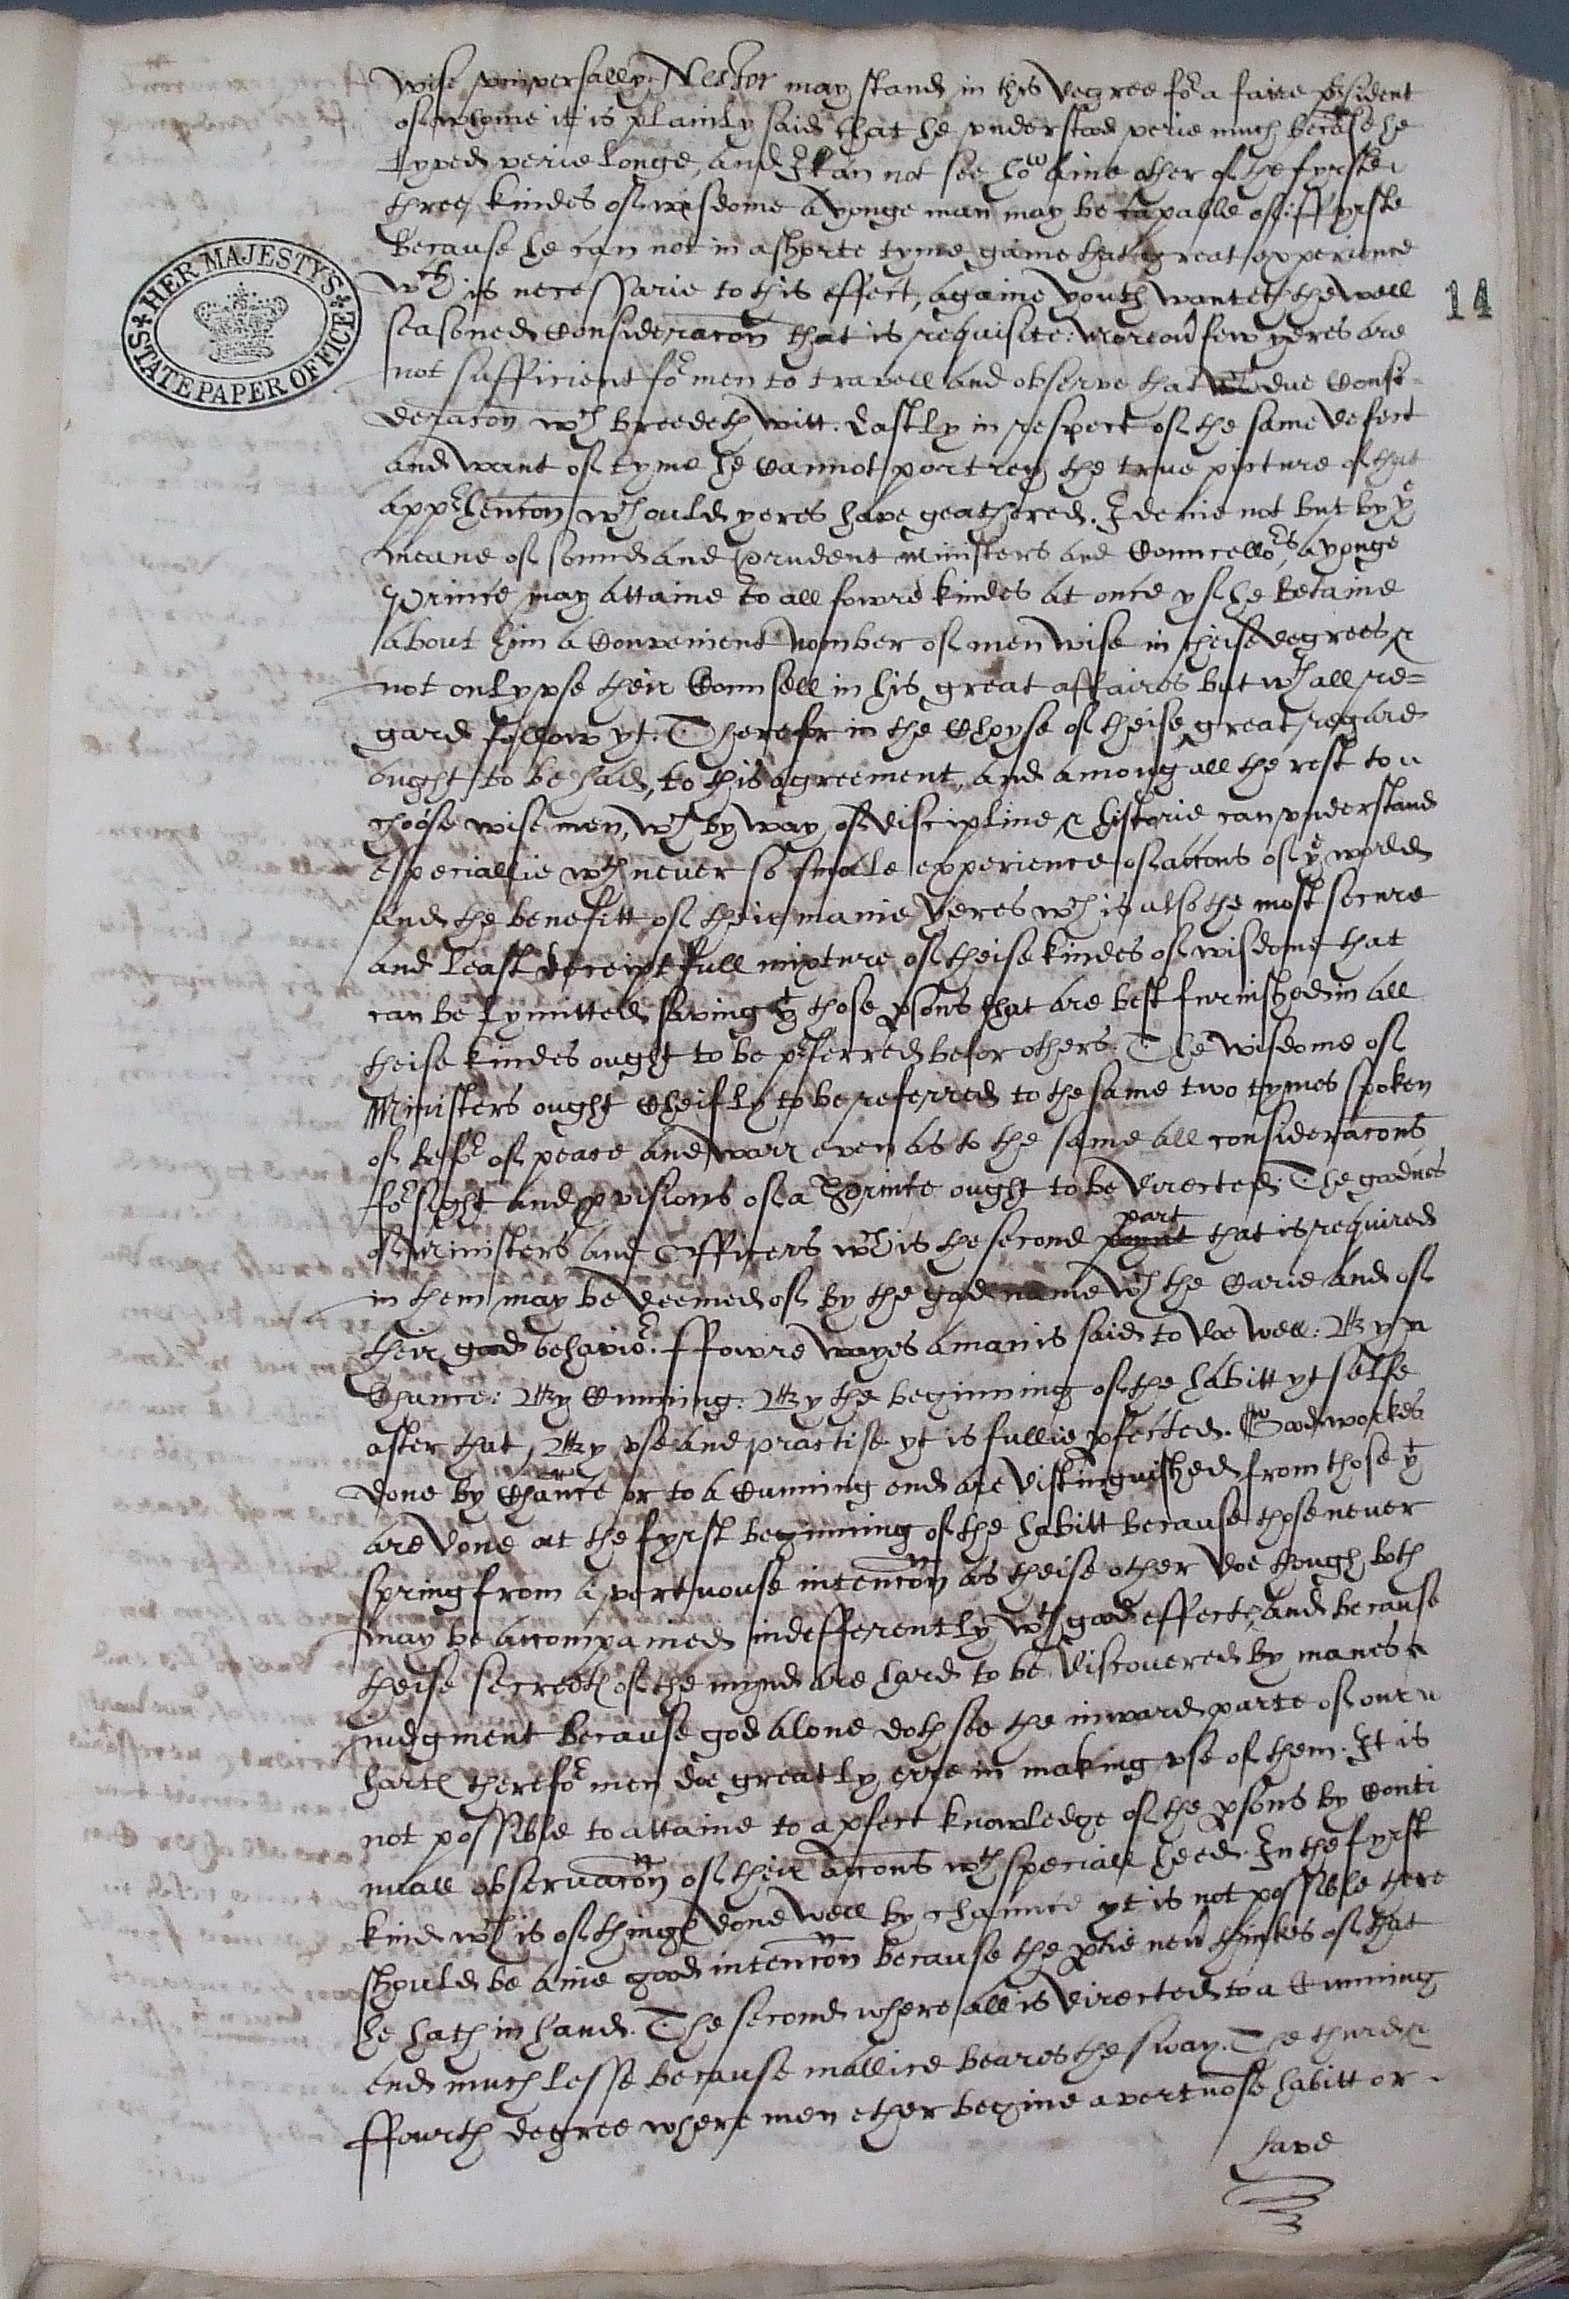 wise vniversally, Nestor may stand in this degree for a faire president
of whome it is plainly said that he vnderstood verie much because he
lyved verie longe, and I kan not see how anie other of the fyrste
three kindes of wisdome a yonge man may be capable of: ffyrste
Because he can not in a shorte tyme gaine that great experience
wch is necessarie to this effect, againe youth wanteth the well
seasoned Consideracon that is requisite: moreour few yeres are
not sufficient for men to travell and observe that wth due Consi-
deracon wch breedeth witt. Lastly in respect of the same defect
and want of tyme he Cannot portrey the true picture of that
apprhencon wch ould yeres have geathered. I denie not but by ye
meane of sound and prudent Ministers and Councellors, a yonge
Prince may attaine to all fowre kindes at once yf he Retaine
about him a Convenient nomber of men wise in theise degrees &
not only vse their Counsell in his great affaires but wth all re=
gard follow yt. Therefor in the Choyse of theise great regard
ought to be had, to this agreement, and among all the rest to
choose wise men, wch by way of discipline & historie can vnderstand
especiallie wth never so smale experience of accons of ye world
and the benefitt of their manie yeres wch is also the most secure
and least deceiptfull mixture of theise kindes of wisdome that
can be lymitted, saving yt those psons that are best furnished in all
theise kindes ought to be pferred befor others. The wisdome of
Ministers ought Cheifly to be referred to the same two tymes spoken
of befor of peace and warr even as to the same all consideracons
forsight and pvisions of a Prince ought to be directed. The goodnes
of ministers and Officers wch is the second poynt part that is required
in them may be deemed of by the good name wch the Carie and of
their good behavior. ffowre wayes a man is said to doe well: By
Chance: By Cunning: By the beginning of the habitt yt selfe
after that, By vse and practise yt is fullie pfected. Good workes
done by Chance or to a Cunning end are distinguished from those yt
are done at the fyrst beginning of the habitt because those never
spring from a vertuouse intencon as theise other doe though both
may be accompanied indefferently wth good effects, and because
theise secrets of the mynd are hard to be discovered by manes
iudgment Because god alone doth see the inward parte of our
harts therefor men doe greatly erre in making vse of them. It is
not possible to attaine to a pfect knowledge of the psons by Conti
nuall observacon of their accons wth speciall heed. In the fyrst
kind wch is of things done well by chaunce yt is not possible there
should be anie good intencon because the ptie neur thinkes of that
he hath in hand. The second where all is directed to a Cunning
end much lesse because mallice beares the sway. The third &
ffourth degree where men ether begine a vertuose habitt or
have
HER MAJESTYS
STATE PAPER OFFICE
14